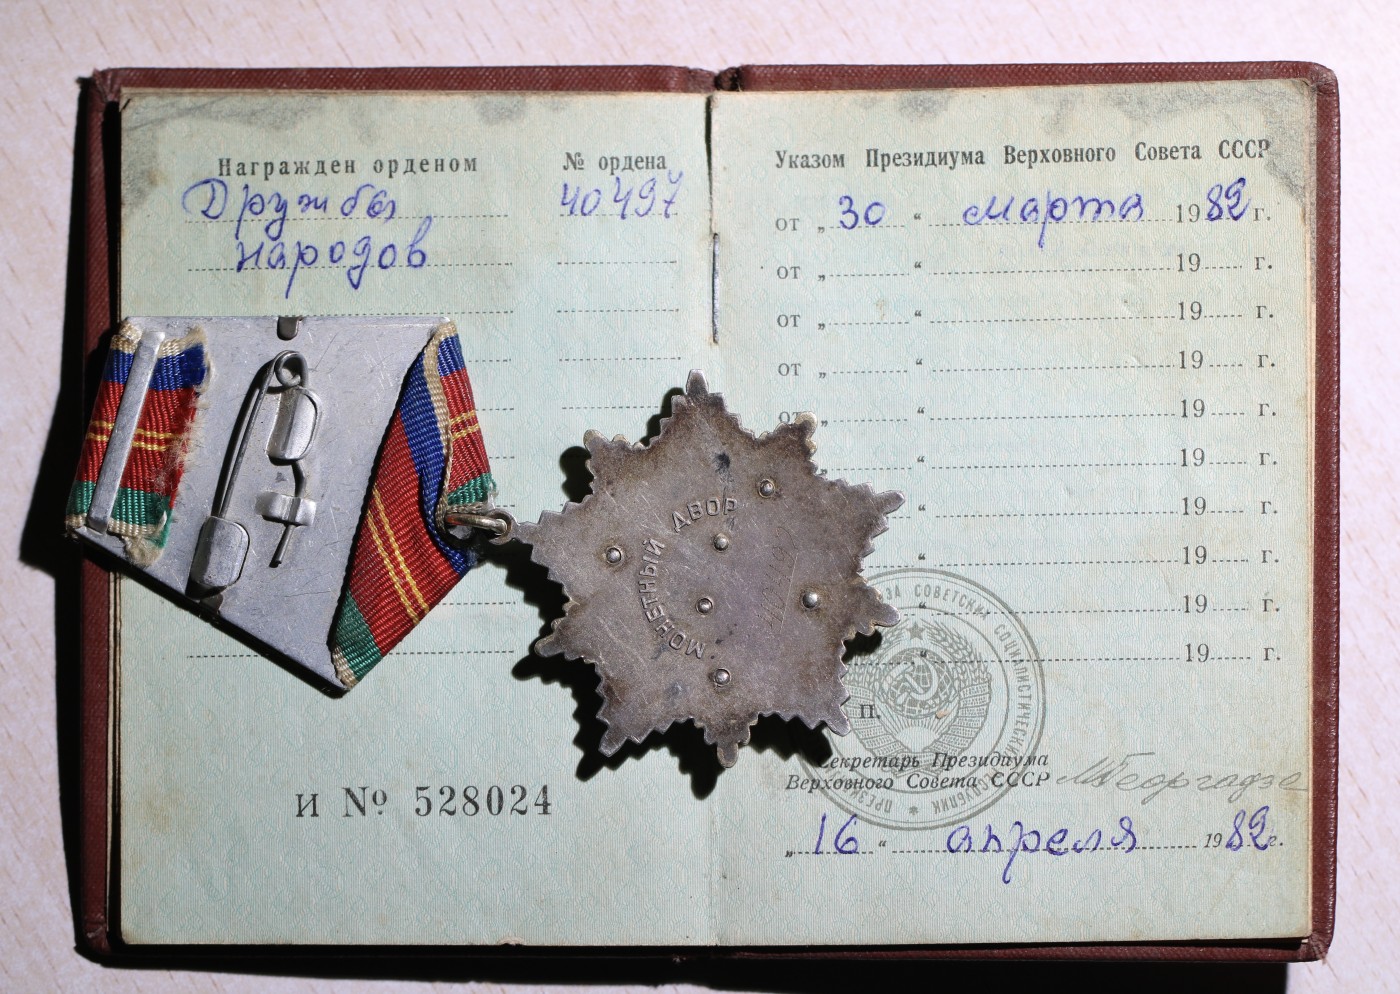 Награжден орденом № ордена
Дружбы 40497
народов
И № 528024
Указом Президиума Верховного Совета СССР
от „ 30 “ марта 1982 г.
от „ “ 19 г.
от „ “ 19 г.
от „ “ 19 г.
от „ “ 19 г.
“ 19 г.
“ 19 г.
“ 19 г.
“ 19 г.
“ 19 г.
П.
Секретарь Президиума
Верховного Совета СССР МГеоргадзе
„ 16 “ апреля 1982 г.
МОНЕТНЫЙ ДВОР
СОВЕТСКИХ СОЦИАЛИСТИЧЕСКИХ